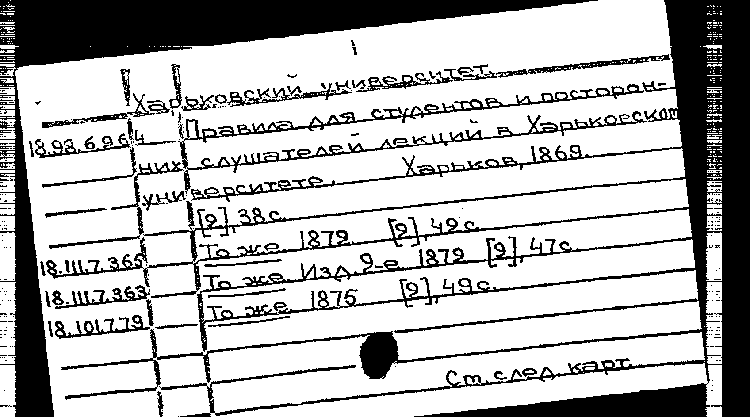 1
Харьковский университет.
18.93.6.964 Правила для студентов и посторон-
них слушателей лекций в Харьковском
университете. Харьков, 1869.
[2], 38 с.
18.111.7.365 То же. 1879 [2], 49 с.
18.111.7.363 То же. Изд. 2-е. 1879 [2], 47 с.
18.101.7.79 То же. 1875 [2], 49 с.
Ст. след. карт.